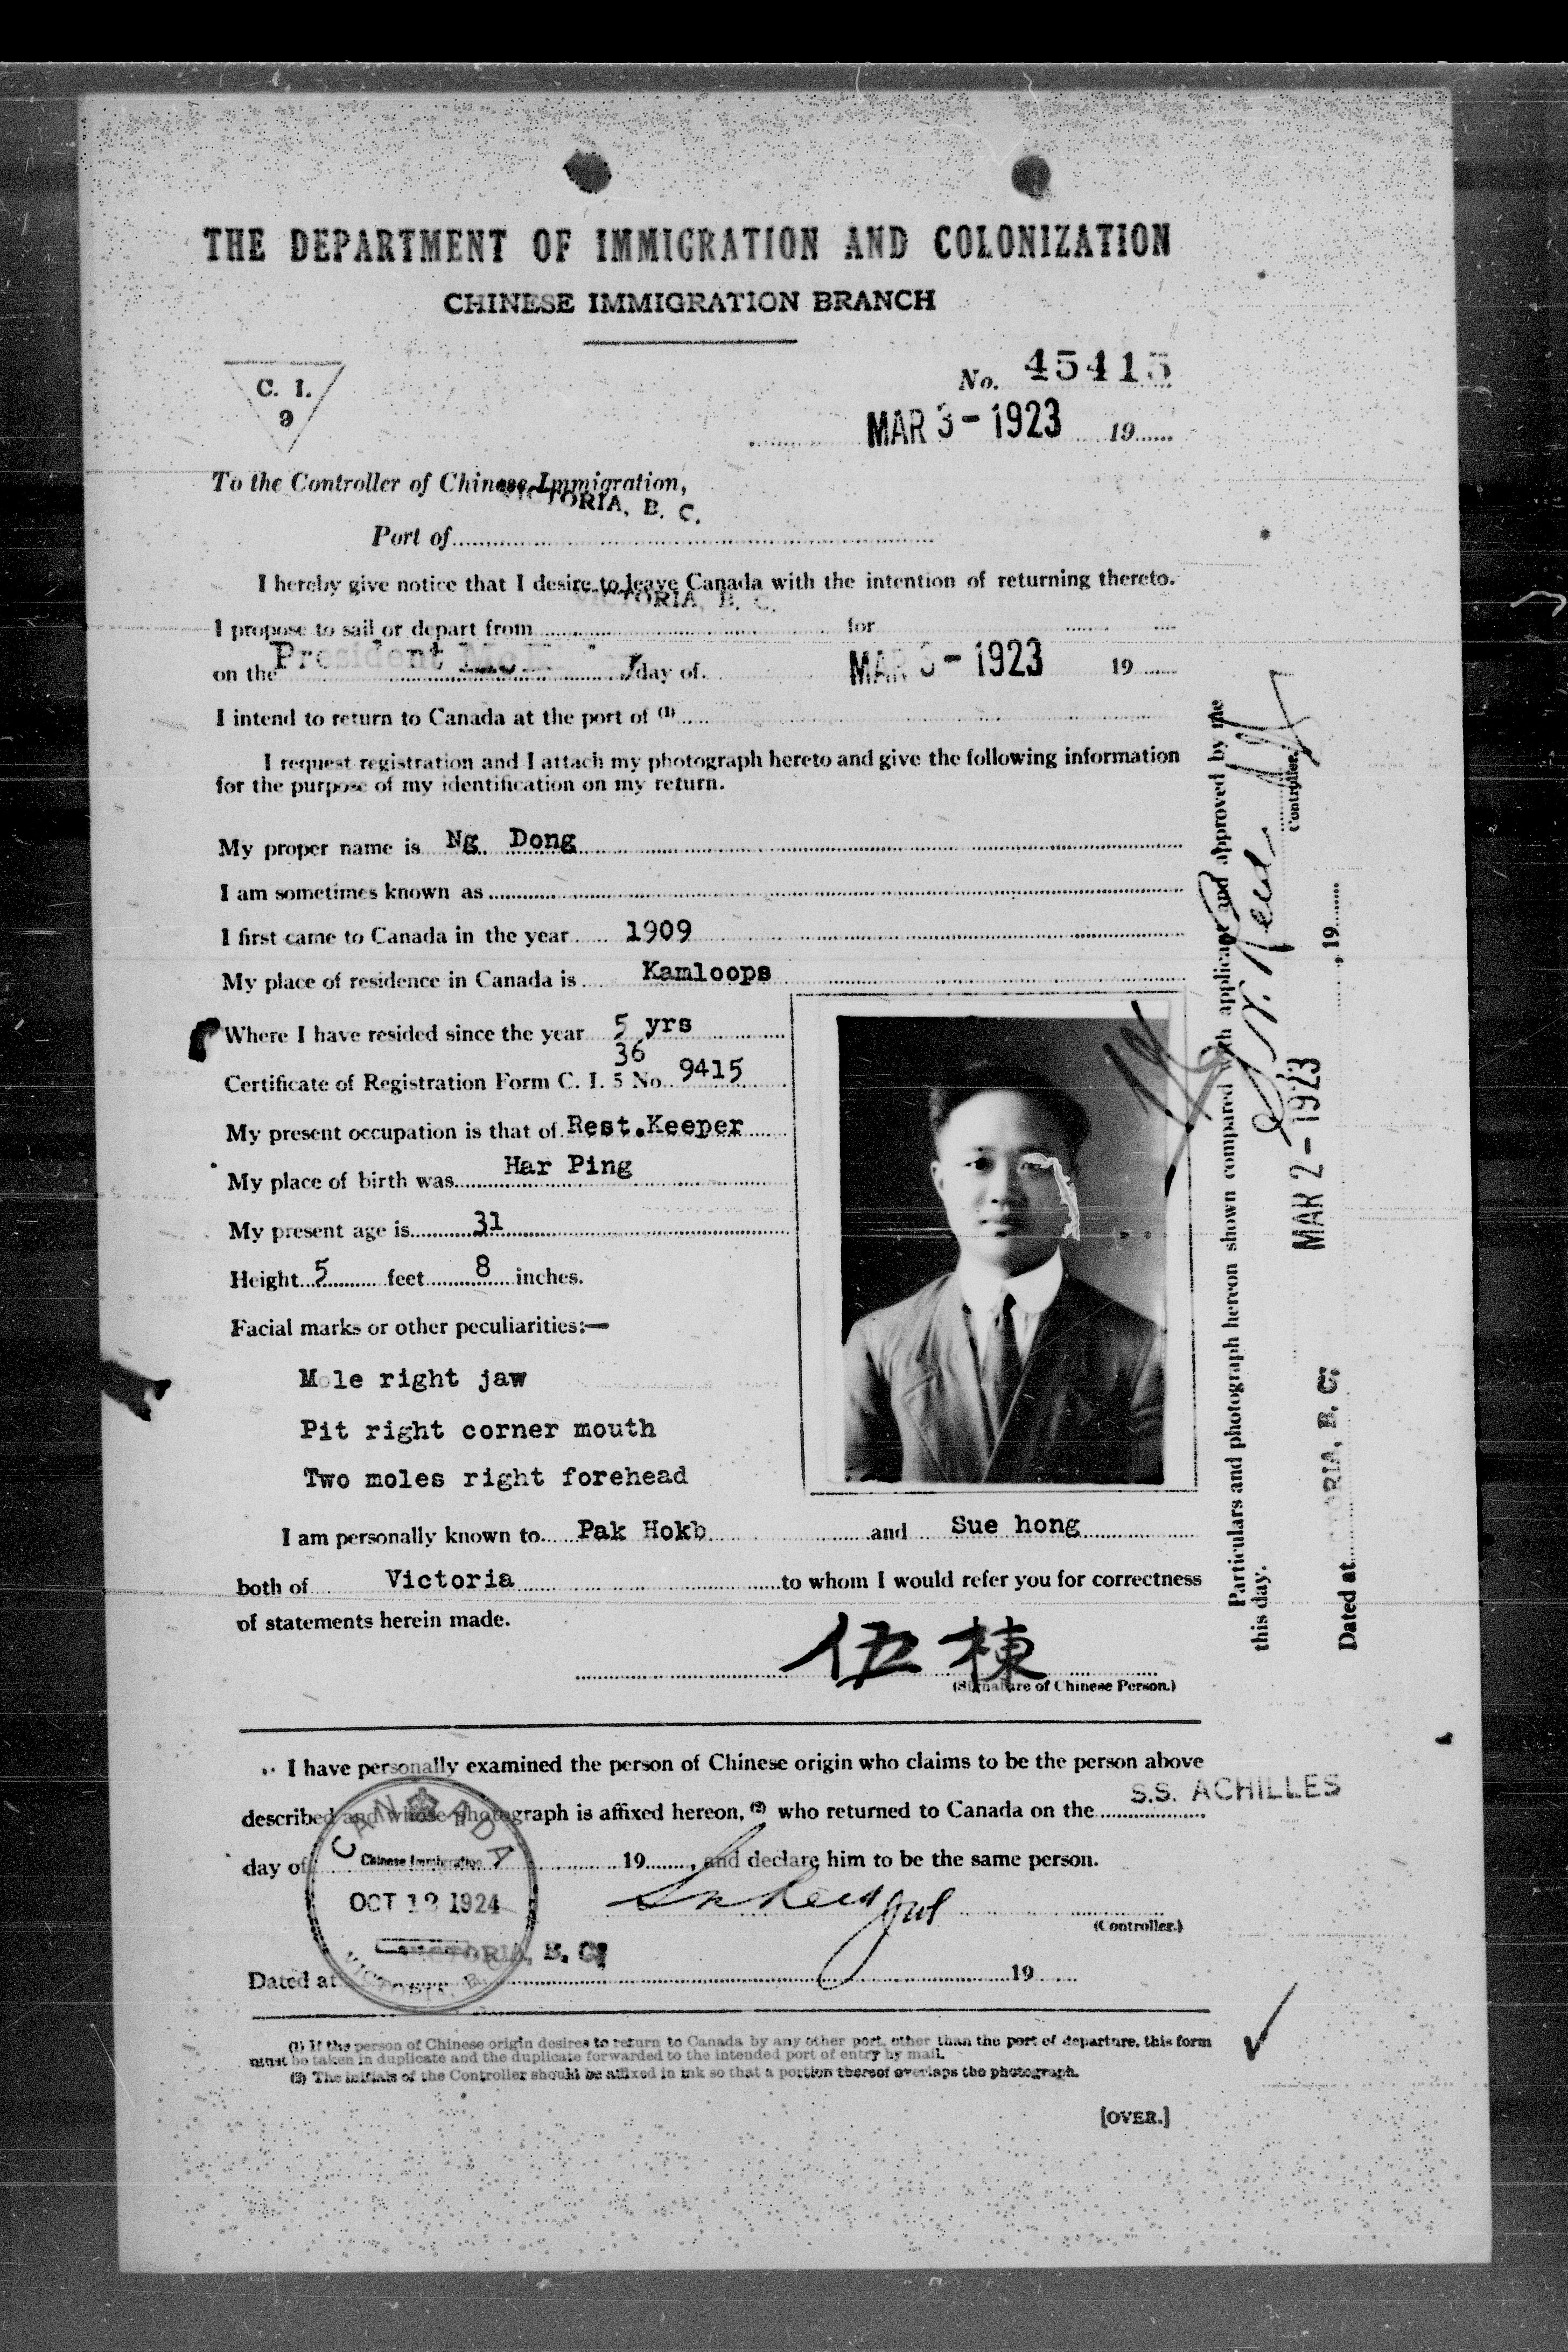 THE DEPARTMENT OF IMMIGRATION AND COLONIZATION
CHINESE IMMIGRATION BRANCH
C. I.
9
No. 45415
MAR 3 - 1923 19
To the Controller of Chinese Immigration,
VICTORIA, B. C.
Port of
I hereby give notice that I desire to leave Canada with the intention of returning thereto.
VICTORIA, B. C.
I propose to sail or depart from for
on the President day of MAR 3 - 1923 19
I intend to return to Canada at the port of (1)
I request registration and I attach my photograph hereto and give the following information
for the purpose of my identification on my return.
My proper name is Ng Dong
I am sometimes known as
I first came to Canada in the year 1909
My place of residence in Canada is Kamloops
Where I have resided since the year 5 yrs
36
Certificate of Registration Form C. I. 5 No. 9415
My present occupation is that of Rest.Keeper
My place of birth was Har Ping
My present age is 31
Height 5 feet 8 inches.
Facial marks or other peculiarities:—
Mole right jaw
Pit right corner mouth
Two moles right forehead
I am personally known to Pak Hokb and Sue hong
both of Victoria to whom I would refer you for correctness
of statements herein made.
伍棟
(Signature of Chinese Person.)
I have personally examined the person of Chinese origin who claims to be the person above
described and whose photograph is affixed hereon, (2) who returned to Canada on the S.S. ACHILLES
day of 19 , and declare him to be the same person.
CANADA
Chinese Immigration
OCT 12 1924
(Controller.)
VICTORIA, B. C.
Dated at 19
(1) If the person of Chinese origin desires to return to Canada by any other port, other than the port of departure, this form
must be taken in duplicate and the duplicate forwarded to the intended port of entry by mail.
(2) The initials of the Controller should be affixed in ink so that a portion thereof overlaps the photograph.
[OVER.]
Particulars and photograph hereon shown compared with applicant and approved by me
this day.
MAR 2 - 1923
Controller.
Dated at VICTORIA, B. C. , 19